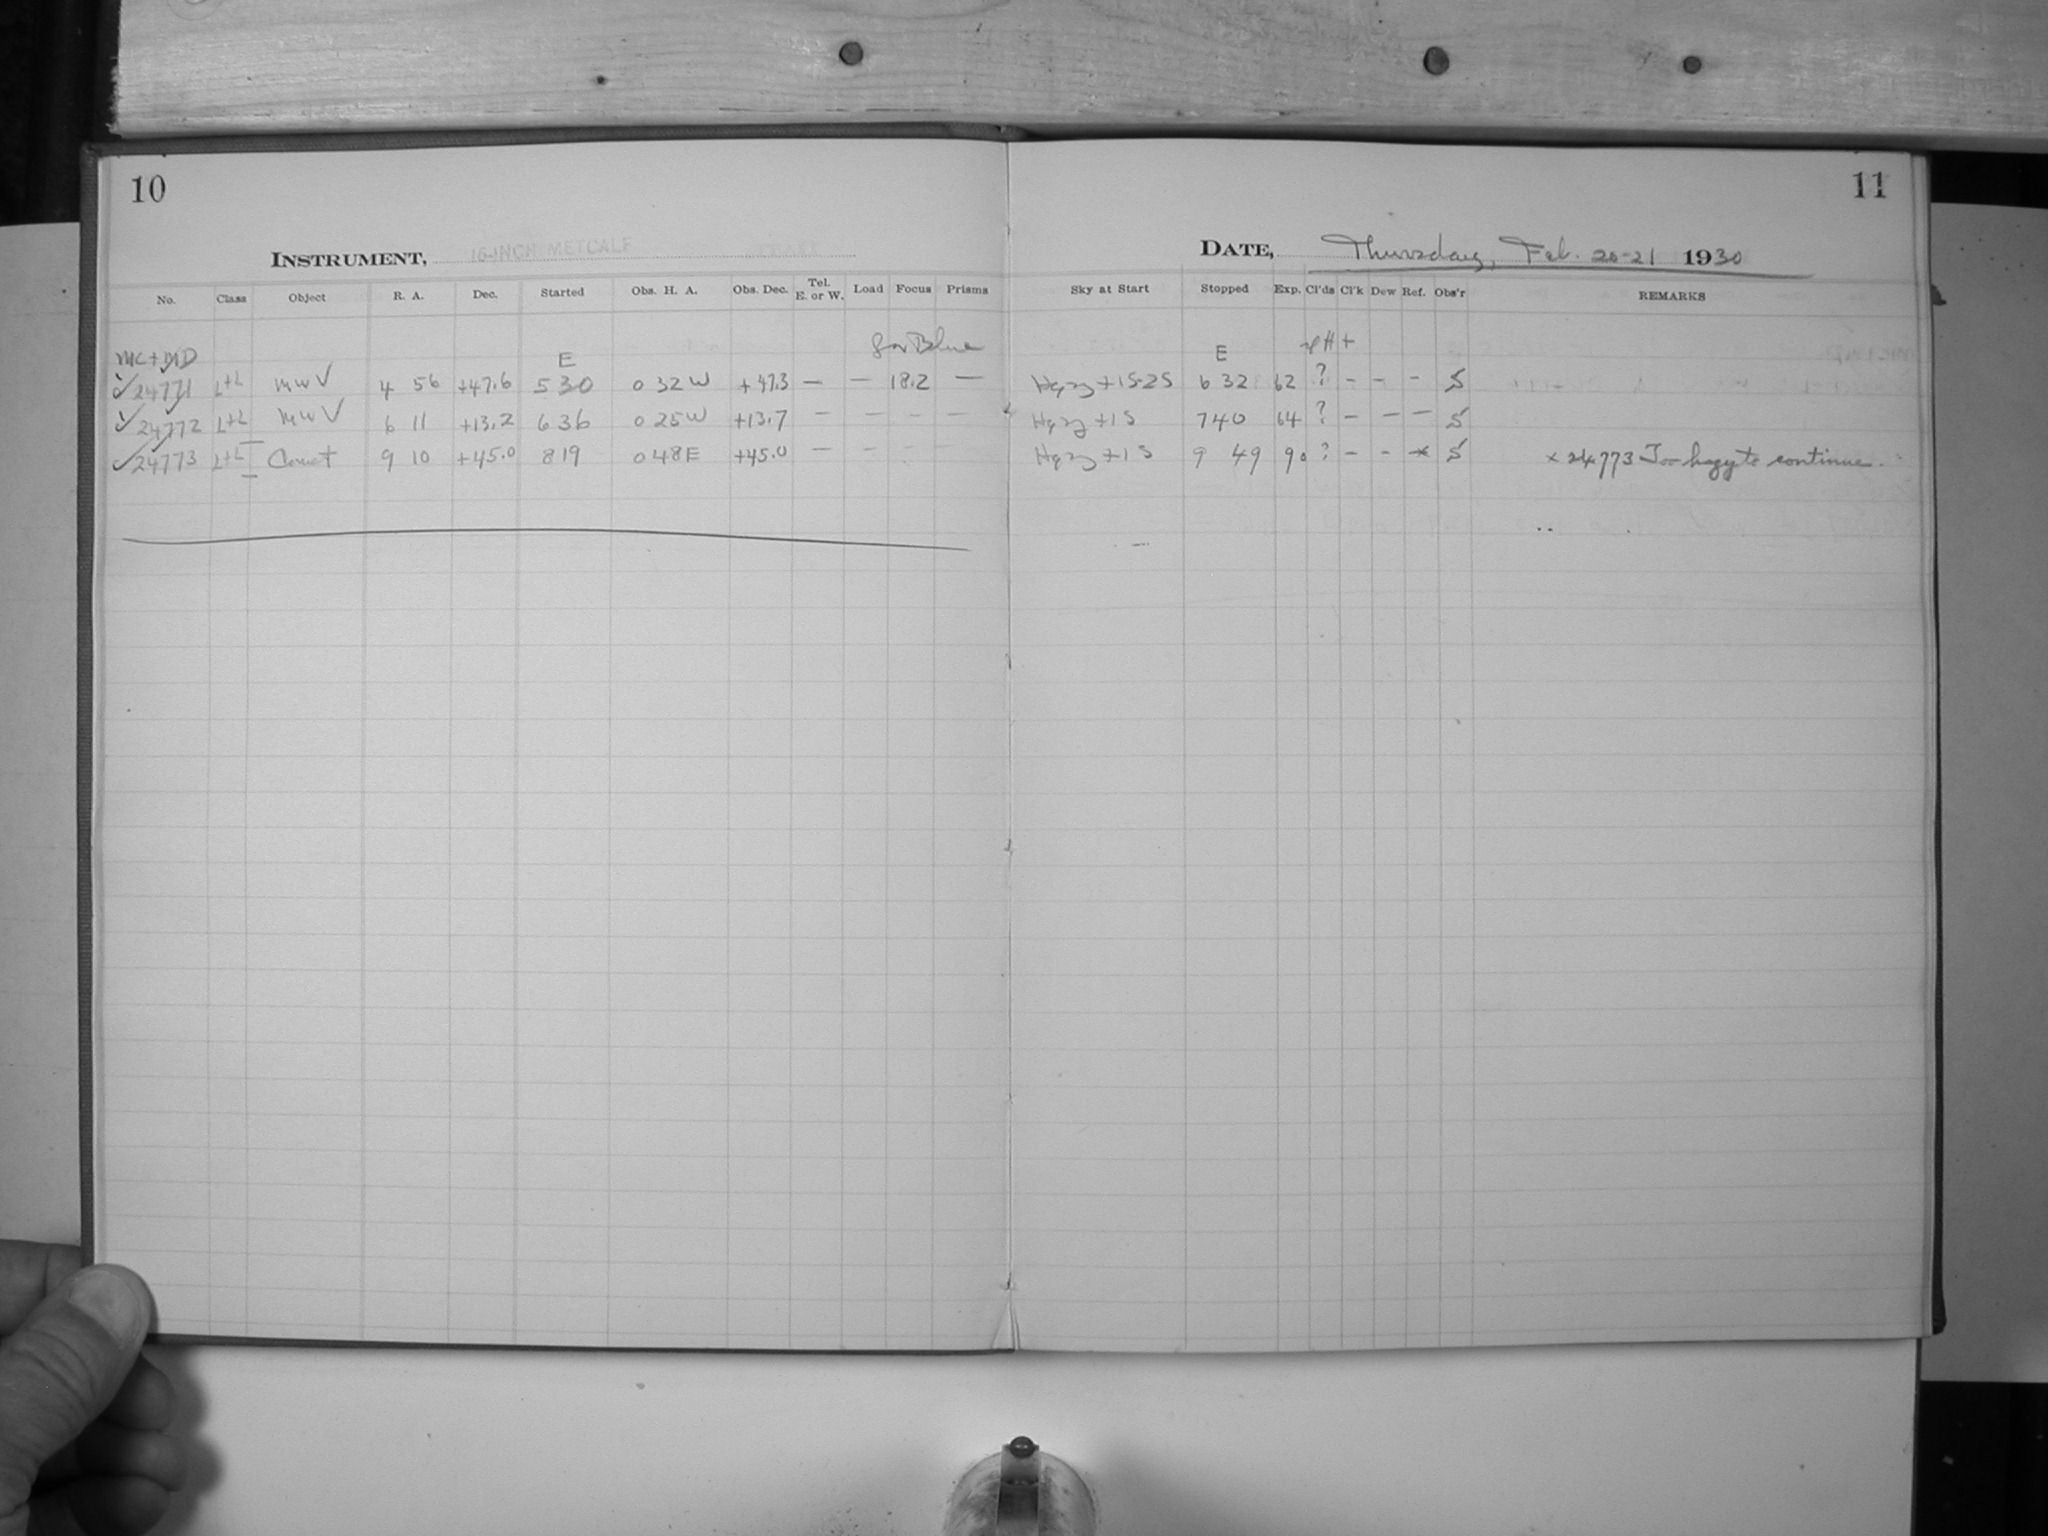 10
11
INSTRUMENT, 16-INCH METCALF
DATE, Thursday, Feb. 20-21 1930
No. Class Object R. A. Dec. Started Obs. H. A. Obs. Dec. Tel. E. or W. Load Focus Prisms Sky at Start Stopped Exp. Cl'ds Cl'k Dew Ref. Obs'r REMARKS
MC+MD E for Blue E
24771 L+L MWV 4 56 +47.6 5 30 0 32 W +47.3 — — 18.2 — Hazy +1S-2S 6 32 62 ? - - - S
24772 L+L MWV 6 11 +13.2 6 36 0 25 W +13.7 — — — — Hazy +1 S 7 40 64 ? - - - S
24773 L+L Comet 9 10 +45.0 8 19 0 48 E +45.0 — — Hazy +1 S 9 49 90 ? - - x S x 24773 Too hazy to continue.